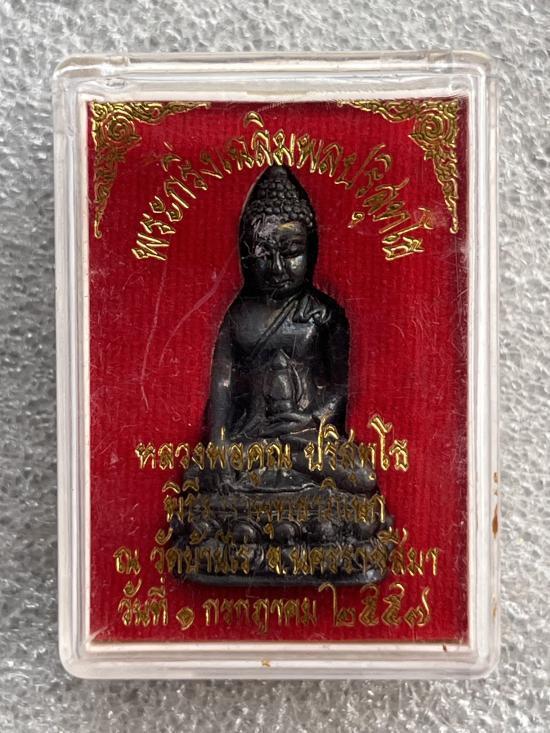 พระกริ่งเฉลิมพลปริสุทโธ
หลวงพ่อคูณ ปริสุทฺโธ
พิธีมหาพุทธาภิเษก
ณ วัดบ้านไร่ จ.นครราชสีมา
วันที่ ๑ กรกฎาคม ๒๕๕๗